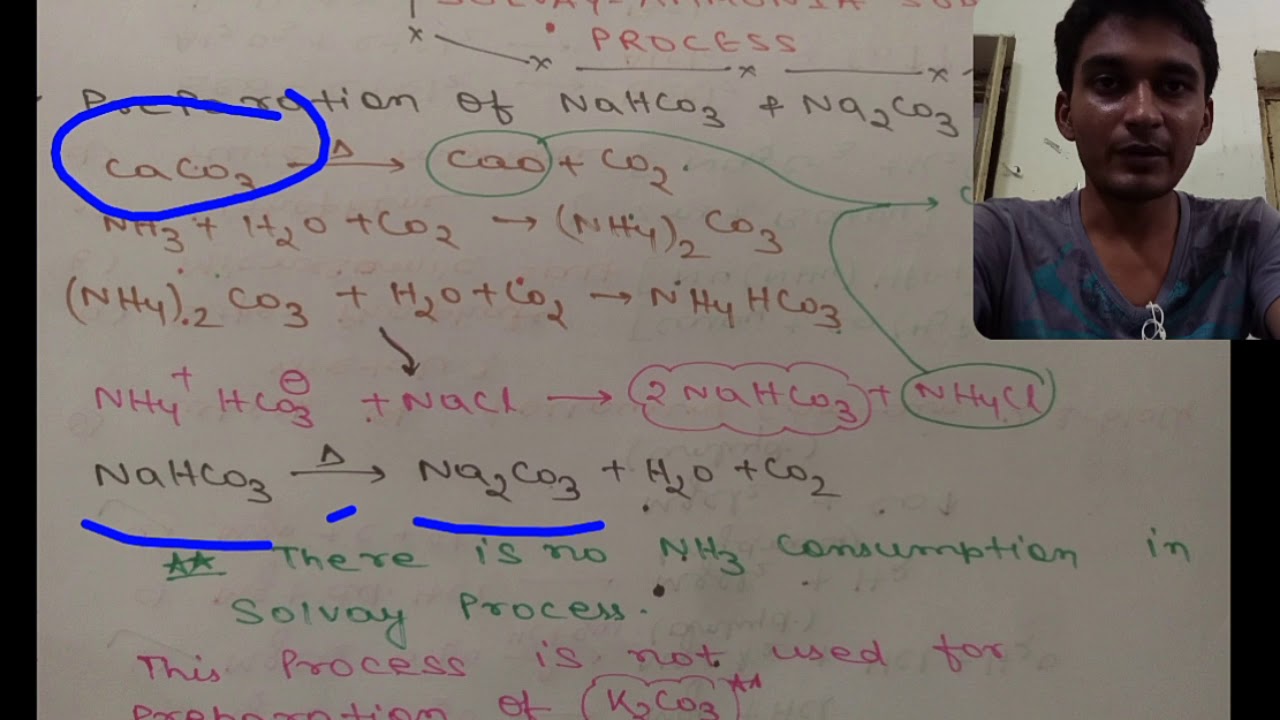 SOLVAY-AMMONIA SOD
PROCESS
Preparation of NaHCO3 & Na2CO3
CaCO3 —Δ→ CaO + CO2
NH3 + H2O + CO2 → (NH4)2 CO3
(NH4)2 CO3 + H2O + CO2 → NH4HCO3
NH4+ HCO3⊖ + NaCl → 2 NaHCO3 + NH4Cl
NaHCO3 —Δ→ Na2CO3 + H2O + CO2
** There is no NH3 consumption in
Solvay Process.
This Process is not used for
Preparation of (K2CO3)**